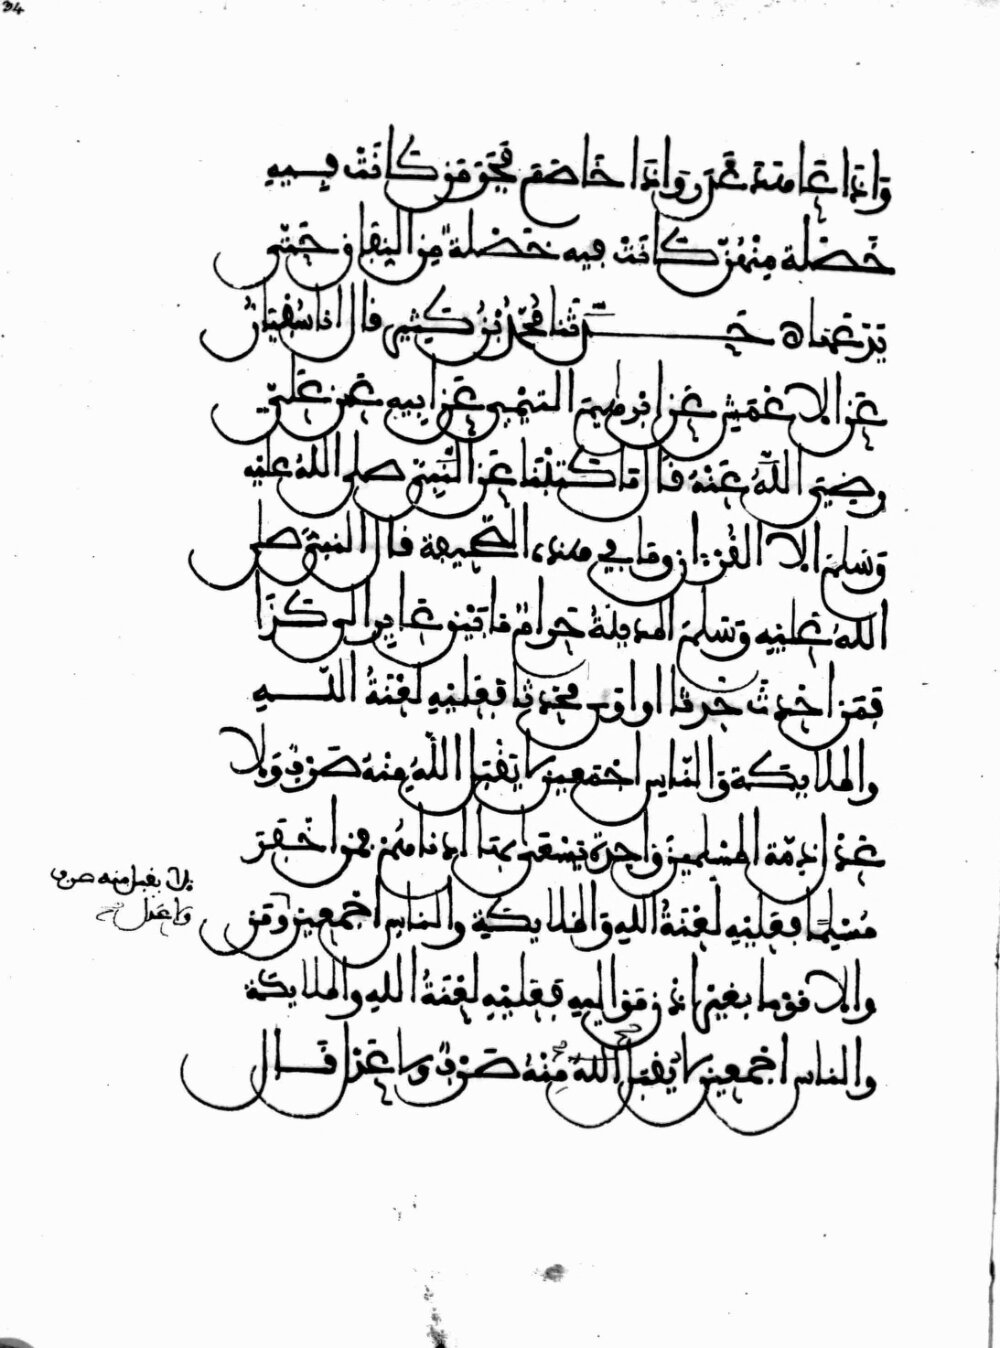 وَإِذَا عَاهَدَ غَدَرَ وَإِذَا خَاصَمَ فَجَرَ وَمَن كَانَتْ فِيهِ
خَصْلَة مِنْهُنّ كَانَتْ فيه خَصْلة مِن النِفَاق حَتّى
يَدَعَهَا حَــدَّثَنا مُحَمَّدُ بْنُ كَثِيرٍ قال انا سُفْيَانُ
عَنِ الاعْمَشِ عَنِ ابْرَاهِيمَ التيْمِي عَنَ ابِيهِ عَن عَلِيّ
رضِيَ اللّهُ عَنْهُ قَال مَا كَتَبْنَا عَنِ النَّبِيّ صلى اللّهُ عليْه
وَسَلم الا القُرْءان وَمَا في هَذِه الصَّحِيفة قال النبيُّ صَلى
اللهُ عَلَيْهِ وَسَلمَ المَدِينَةُ حَرَامٌ مَا بَيْنَ عَايِرٍ الى كَذَا
فمَن احْدَثَ حَدَثًا او اوَى مُحْدِثا فعَلَيْهِ لَعْنَةُ اللّــهِ
والملايكَة وَالنّاسِ اجْمَعِينَ لا يُقْبَل اللّهُ مِنْهُ صَرْفٌ وَلا
عَدْل ذِمّة المسْلِمينَ وَاحِدَة يَسْعَى بهَا ادْنَاهُمْ فمَن اخْفَرَ
مُسْلِمًا فعَلَيْهِ لَعْنَةُ اللهِ وَالمَلايكَةِ والنّاسِ اجْمعِينَ وَمَن
لا يقبل منه صرف
ولا عدل صح
والا قوْما بغيْرِ اذْن مَوَاليهِ فعَلَيْهِ لَعْنَةُ اللهِ والملايكة
والناس اجْمعِين لا يُقْبَل اللهُ مِنْهُ صَرْفٌ ولا عَدْل قَــال